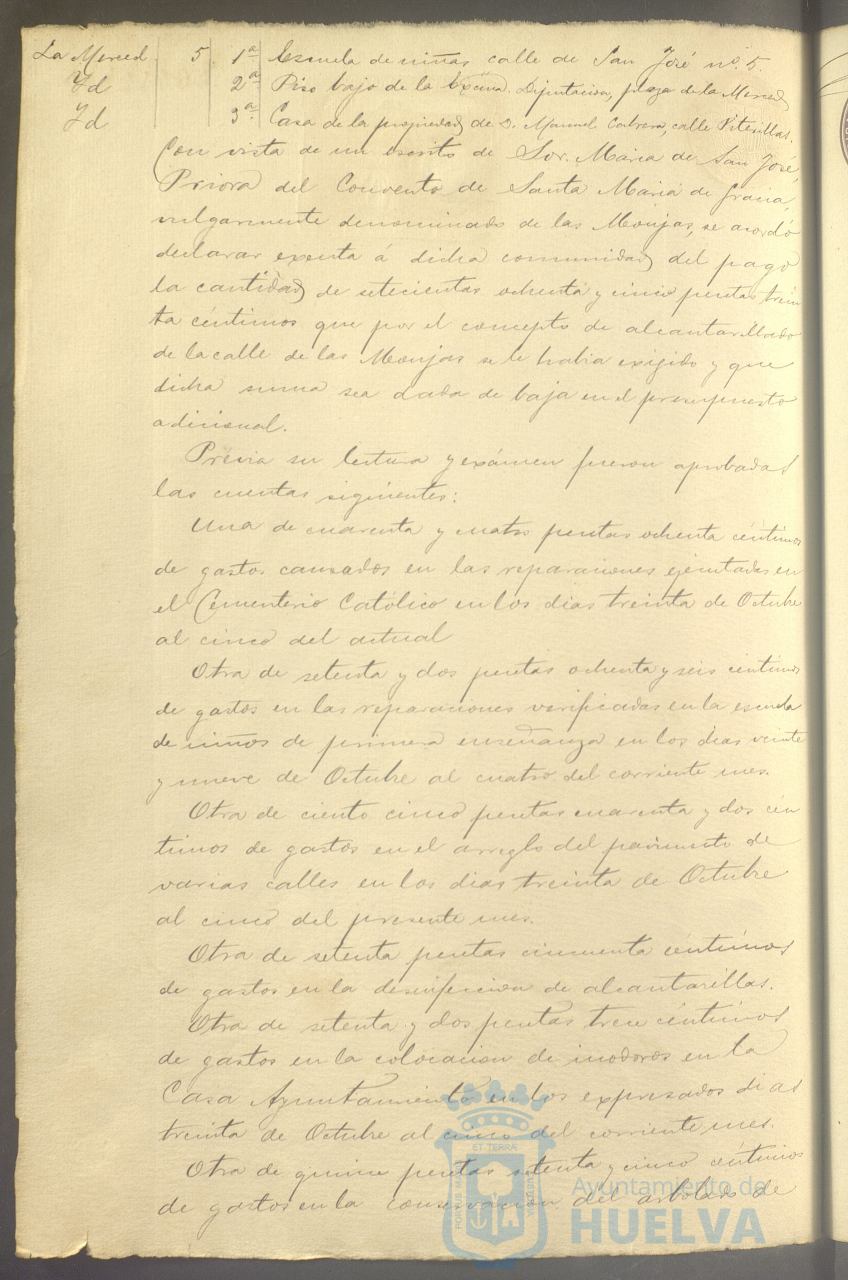 La Merced. 5 1ª Escuela de niñas calle de San José nº. 5.
Yd 2ª Piso bajo de la Excma. Diputacion, plaza de la Merced
Yd 3ª Casa de la propiedad de D. Manuel Cabrera, calle Vitesillas.
Con vista de un escrito de Sor. Maria de San José,
Priora del Convento de Santa Maria de Gracia,
vulgarmente denominado de las Monjas, se acordó
declarar exenta á dicha comunidad del pago
la cantidad de setecientas ochenta y cinco pesetas trein
ta céntimos que por el concepto de alcantarillado
de la calle de las Monjas se le habia exigido y que
dicha suma sea dada de baja en el presupuesto
adicional.
Prévia su lectura y exámen fueron aprobadas
las cuentas siguientes:
Una de cuarenta y cuatro pesetas ochenta céntimos
de gastos causados en las reparaciones ejecutadas en
el Cementerio Católico en los dias treinta de Octubre
al cinco del actual
Otra de setenta y dos pesetas ochenta y seis céntimos
de gastos en las reparaciones verificadas en la escuela
de niños de primera enseñanza en los dias veinte
y nueve de Octubre al cuatro del corriente mes.
Otra de ciento cinco pesetas cuarenta y dos cén
timos de gastos en el arreglo del pavimento de
varias calles en los dias treinta de Octubre
al cinco del presente mes.
Otra de setenta pesetas cincuenta céntimos
de gastos en la desinfeccion de alcantarillas.
Otra de setenta y dos pesetas trece céntimos
de gastos en la colocacion de inodoros en la
Casa Ayuntamiento en los expresados dias
treinta de Octubre al cinco del corriente mes.
Otra de quince pesetas setenta y cinco céntimos
de gastos en la conservacion del arbolado de
ET TERRÆ
PORTUS MARIS
Ayuntamiento de
HUELVA